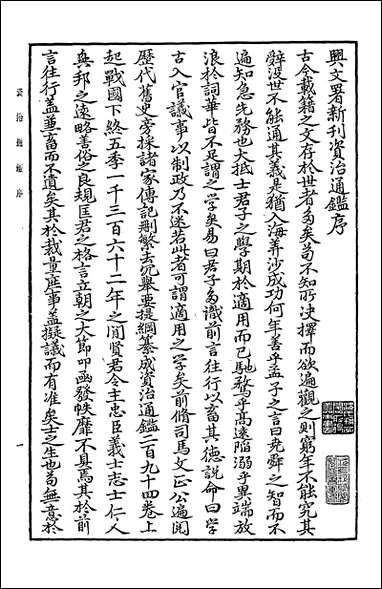 興文署新刊資治通鑑序
古今載籍之文存於世者多矣苟不知所決擇而欲遍觀之則窮年不能究其
辭没世不能通其義是猶入海筭沙成功何年善乎孟子之言曰堯舜之智而不
遍知急先務也大抵士君子之學期於適用而已馳騖乎高遠陷溺乎異端放
浪於詞華皆不足謂之學矣易曰君子多識前言往行以畜其德說命曰學
古入官議事以制政乃不迷若此者可謂適用之學矣前脩司馬文正公遍閱
歷代舊史旁採諸家傳記刪繁去冗舉要提綱纂成資治通鑑二百九十四卷上
起戰國下終五季一千三百六十二年之間賢君令主忠臣義士志士仁人
興邦之遠略善俗之良規匡君之格言立朝之大節叩函發帙靡不具焉其於前
言往行蓋兼畜而不遺矣其於裁量庶事蓋擬議而有准矣士之生也苟無意於
資治通鑑序
一